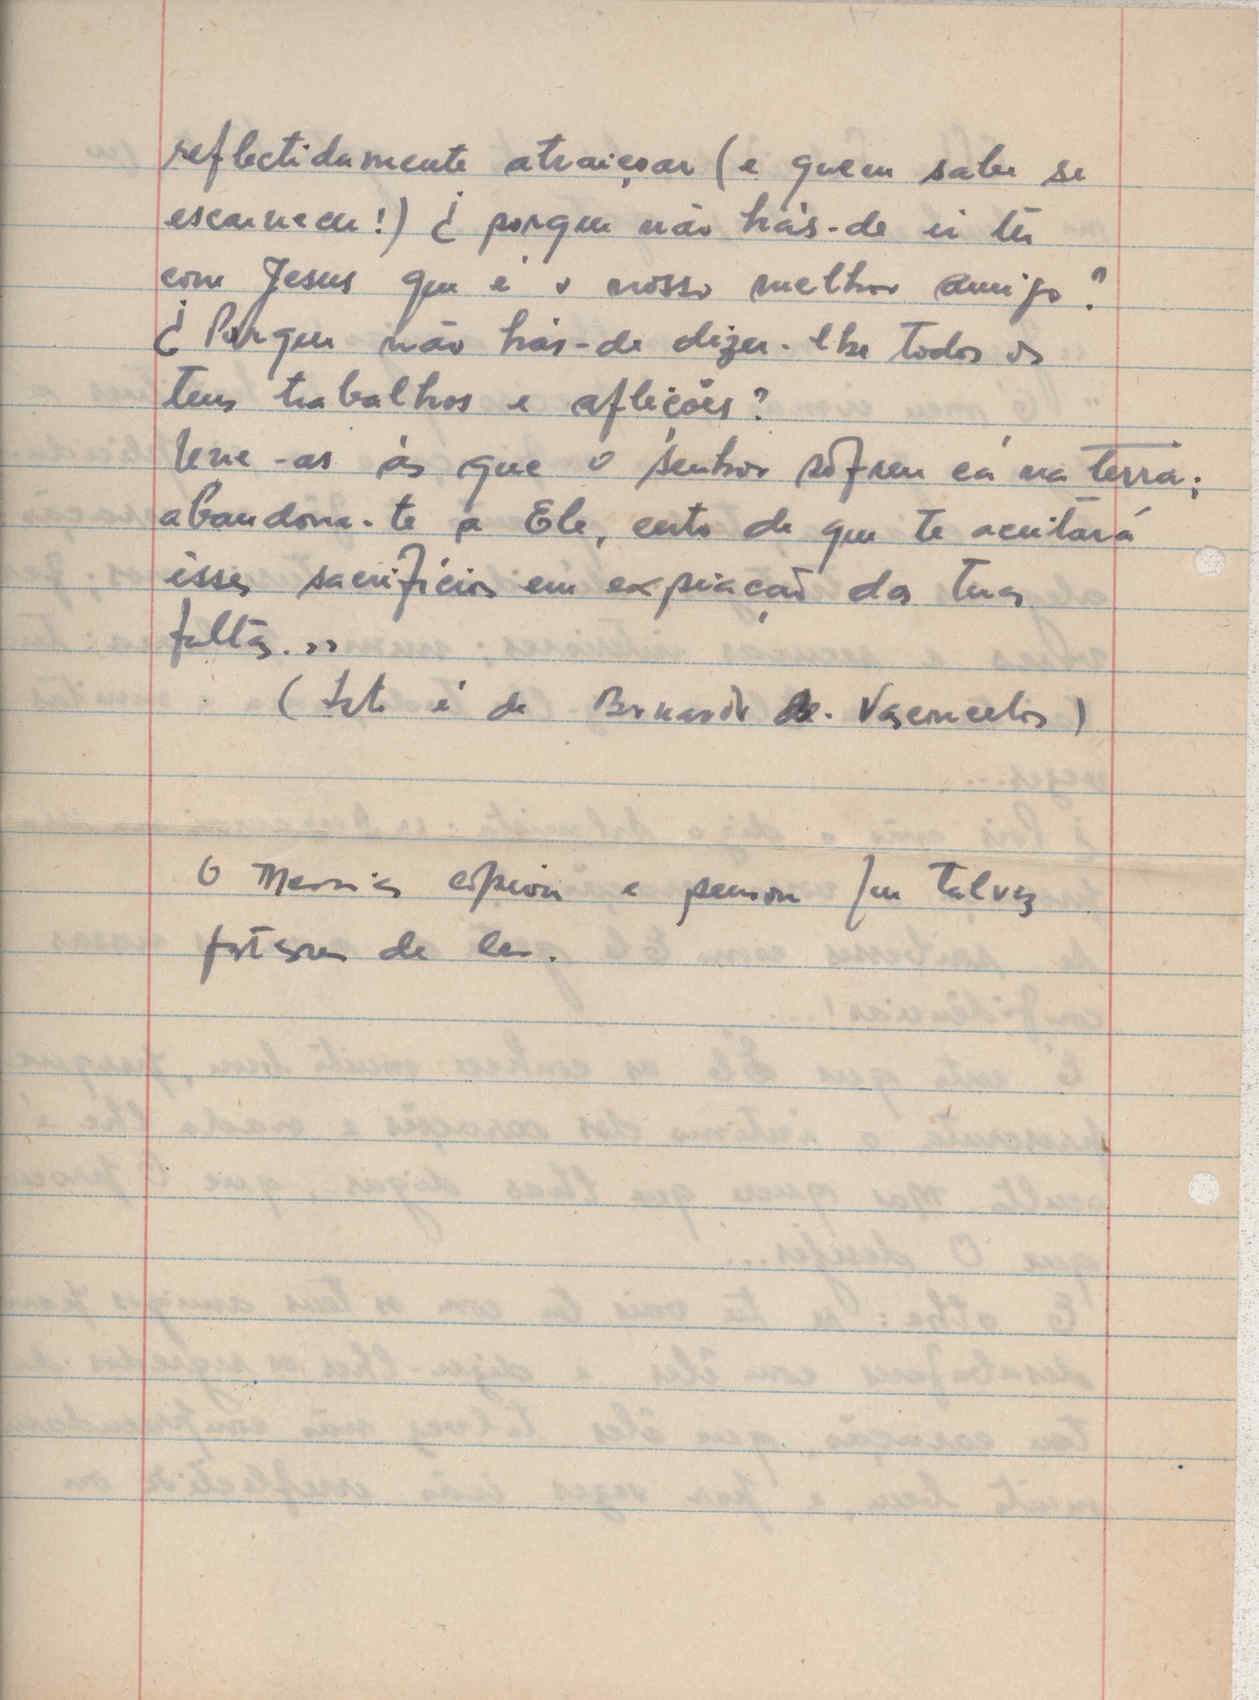 reflectidamente atraiçoar (e quem sabe se
escarnecer!) ¿ porque não hás-de ir ter
com Jesus que é o nosso melhor amigo?
¿ Porque não hás-de dizer-lhe todos os
teus trabalhos e aflições?
Une-as às que o Senhor sofreu cá na terra;
abandona-te a Ele, certo de que te aceitará
êsses sacrifícios em expiação das tuas
faltas.,,
(Isto é de Bernardo de Vasconcelos)
O Messias copiou e pensou que talvez
gostasses de ler.